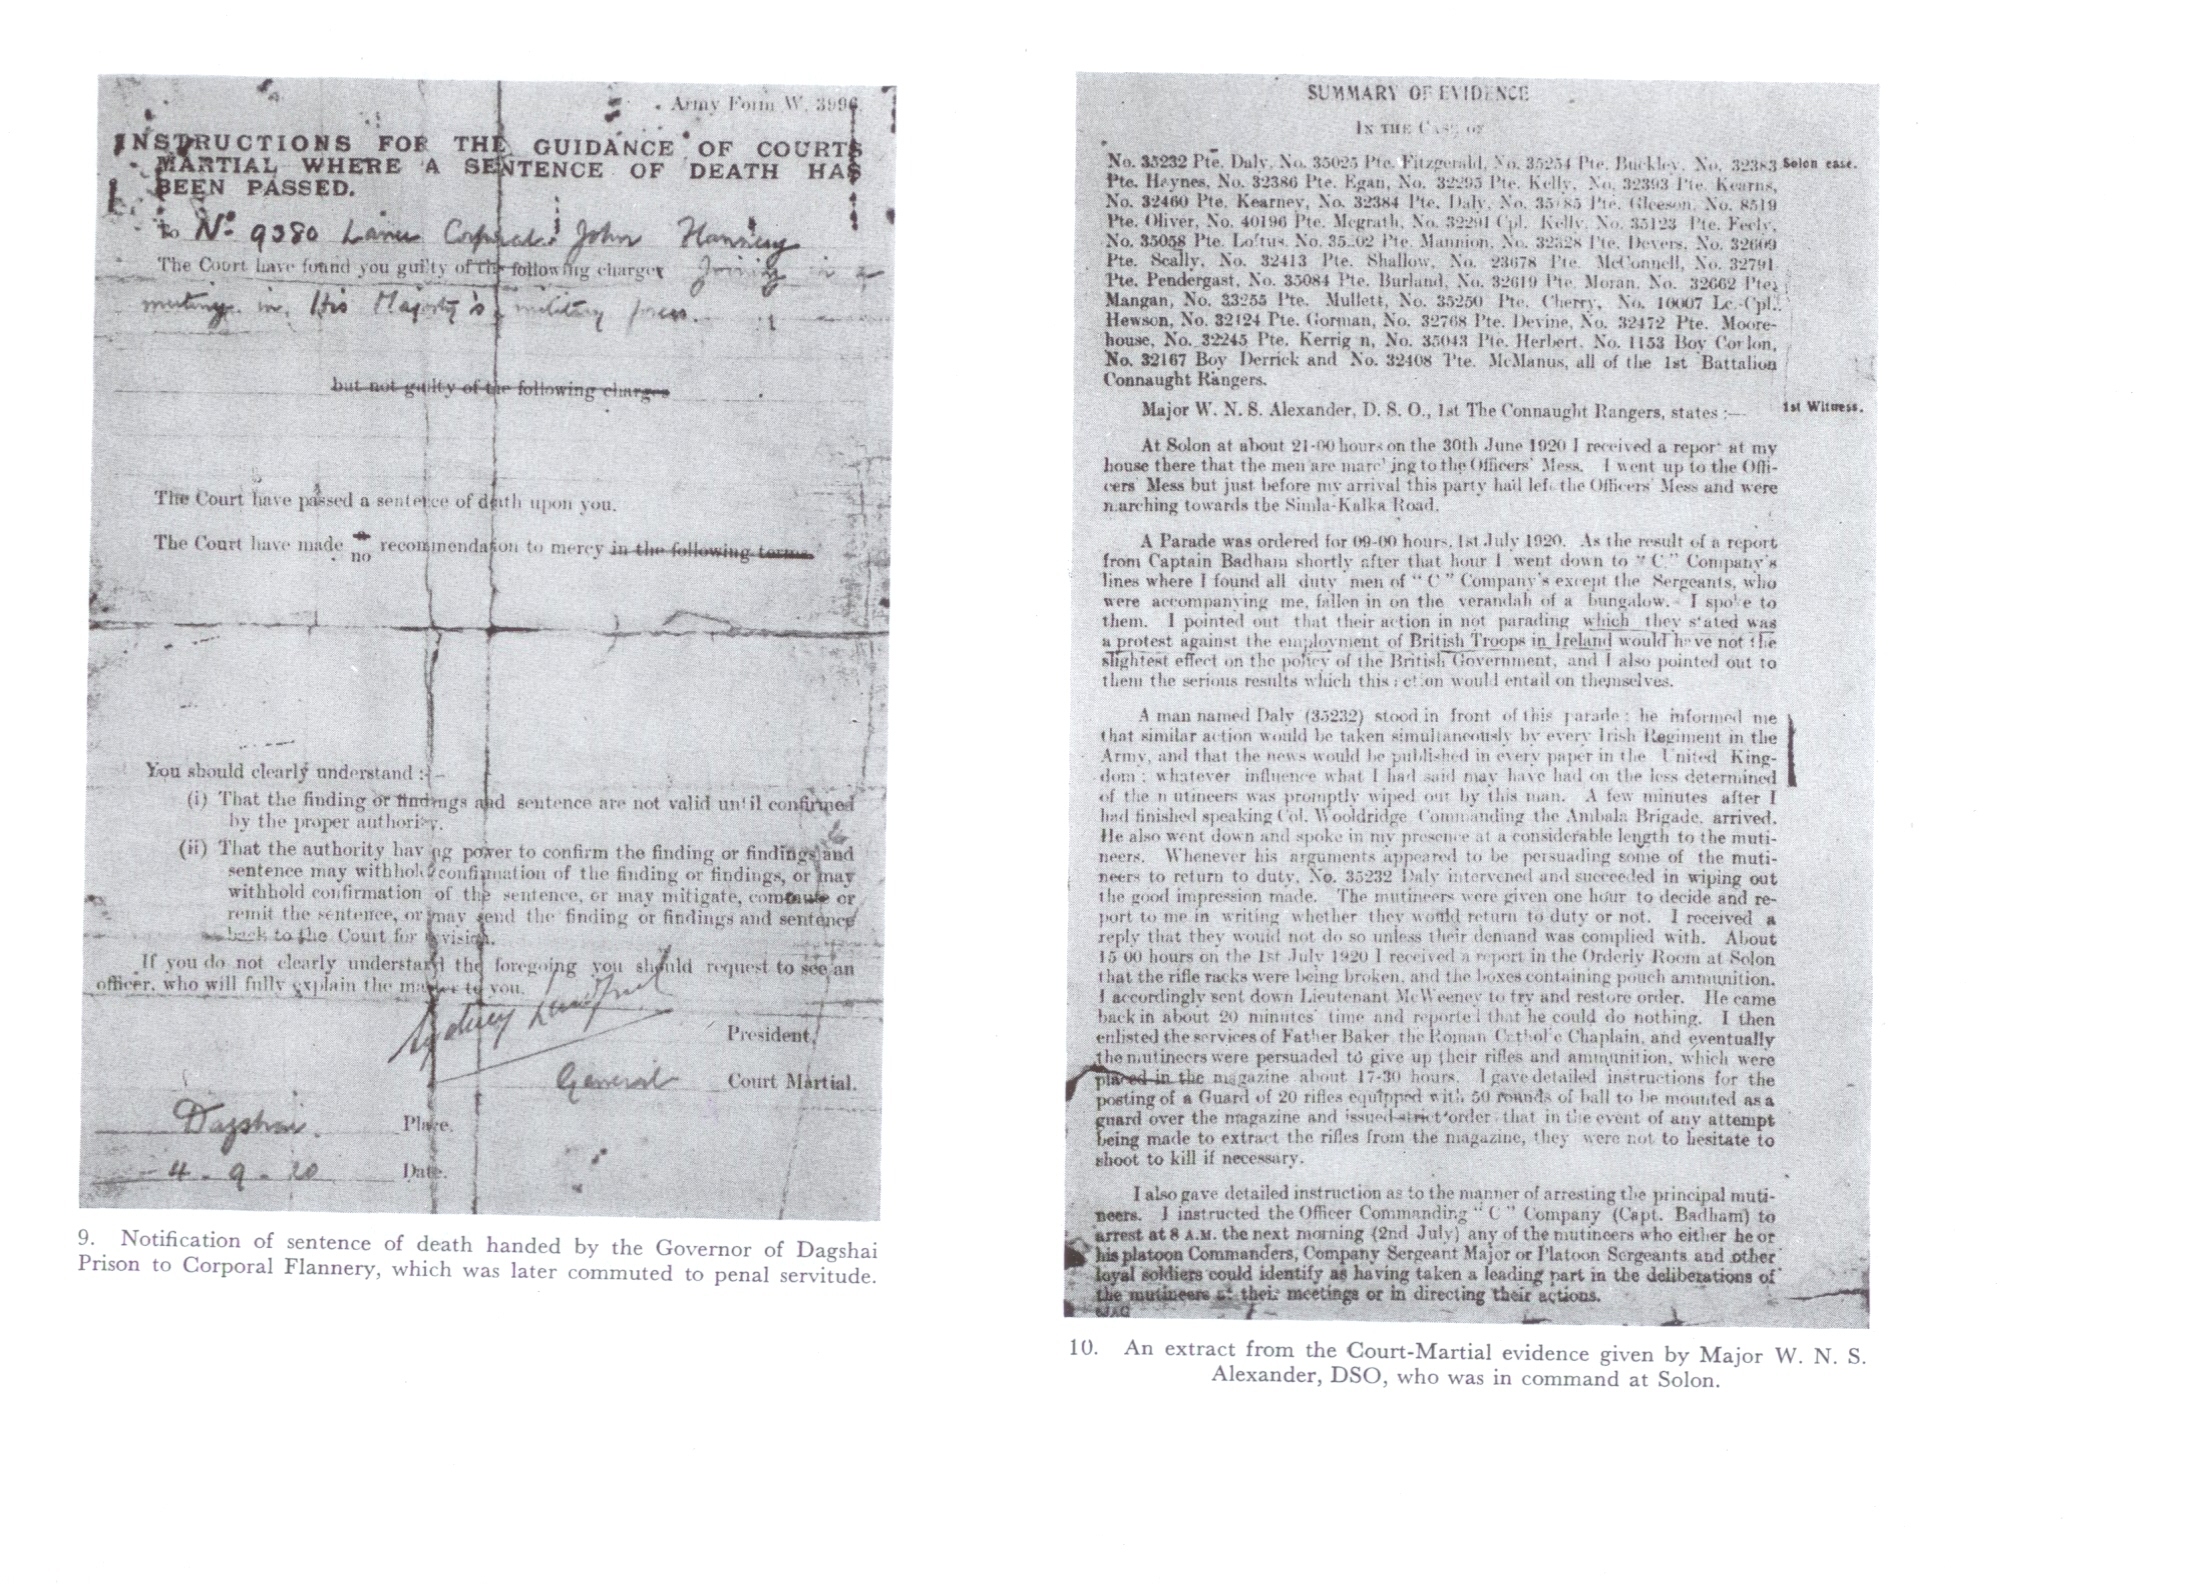 Army Form W. 3996
INSTRUCTIONS FOR THE GUIDANCE OF COURTS
MARTIAL WHERE A SENTENCE OF DEATH HAS
BEEN PASSED.
to No 9380 Lance Corporal John Flannery
The Court have found you guilty of the following charges Joining in a
mutiny in His Majesty's military forces.
but not guilty of the following charges
The Court have passed a sentence of death upon you.
The Court have made no recommendation to mercy in the following terms
You should clearly understand :—
(i) That the finding or findings and sentence are not valid until confirmed
by the proper authority.
(ii) That the authority having power to confirm the finding or findings and
sentence may withhold confirmation of the finding or findings, or may
withhold confirmation of the sentence, or may mitigate, commute or
remit the sentence, or may send the finding or findings and sentence
back to the Court for revision.
If you do not clearly understand the foregoing you should request to see an
officer, who will fully explain the matter to you.
Sydney
President,
General Court Martial.
Dagshai. Place.
4 - 9 - 20 Date.
9. Notification of sentence of death handed by the Governor of Dagshai
Prison to Corporal Flannery, which was later commuted to penal servitude.
SUMMARY OF EVIDENCE
IN THE CASE OF
No. 35232 Pte. Daly, No. 35025 Pte. Fitzgerald, No. 35254 Pte. Buckley, No. 32383 Solon case.
Pte. Haynes, No. 32386 Pte. Egan, No. 32295 Pte. Kelly, No. 32393 Pte. Kearns,
No. 32460 Pte. Kearney, No. 32384 Pte. Daly, No. Pte. Gleeson, No. 8519
Pte. Oliver, No. 40196 Pte. Mcgrath, No. 32291 Cpl. Kelly, No. 35123 Pte. Feely,
No. 35058 Pte. Loftus, No. Pte. Mannion, No. 32328 Pte. Devers, No. 32609
Pte. Scally, No. 32413 Pte. Shallow, No. 23678 Pte. McConnell, No. 32791
Pte. Pendergast, No. 35084 Pte. Burland, No. 32619 Pte. Moran, No. 32662 Pte.
Mangan, No. 33255 Pte. Mullett, No. 35250 Pte. Cherry, No. 10007 Lc.-Cpl.
Hewson, No. 32124 Pte. Gorman, No. 32768 Pte. Devine, No. 32472 Pte. Moore-
house, No. 32245 Pte. Kerrigan, No. 35043 Pte. Herbert, No. 1153 Boy Conlon,
No. 32167 Boy Derrick and No. 32408 Pte. McManus, all of the 1st Battalion
Connaught Rangers.
Major W. N. S. Alexander, D. S. O., 1st The Connaught Rangers, states :— 1st Witness.
At Solon at about 21-00 hours on the 30th June 1920 I received a report at my
house there that the men are marching to the Officers' Mess. I went up to the Offi-
cers' Mess but just before my arrival this party had left the Officers' Mess and were
marching towards the Simla-Kalka Road.
A Parade was ordered for 09-00 hours, 1st July 1920. As the result of a report
from Captain Badham shortly after that hour I went down to "C" Company's
lines where I found all duty men of "C" Company's except the Sergeants, who
were accompanying me, fallen in on the verandah of a bungalow. I spoke to
them. I pointed out that their action in not parading which they stated was
a protest against the employment of British Troops in Ireland would have not the
slightest effect on the policy of the British Government, and I also pointed out to
them the serious results which this action would entail on themselves.
A man named Daly (35232) stood in front of this parade : he informed me
that similar action would be taken simultaneously by every Irish Regiment in the
Army, and that the news would be published in every paper in the United King-
dom : whatever influence what I had said may have had on the less determined
of the mutineers was promptly wiped out by this man. A few minutes after I
had finished speaking Col. Wooldridge Commanding the Ambala Brigade, arrived.
He also went down and spoke in my presence at a considerable length to the muti-
neers. Whenever his arguments appeared to be persuading some of the muti-
neers to return to duty, No. 35232 Daly intervened and succeeded in wiping out
the good impression made. The mutineers were given one hour to decide and re-
port to me in writing whether they would return to duty or not. I received a
reply that they would not do so unless their demand was complied with. About
15 00 hours on the 1st July 1920 I received a report in the Orderly Room at Solon
that the rifle racks were being broken, and the boxes containing pouch ammunition.
I accordingly sent down Lieutenant McWeeney to try and restore order. He came
back in about 20 minutes' time and reported that he could do nothing. I then
enlisted the services of Father Baker the Roman Catholic Chaplain, and eventually
the mutineers were persuaded to give up their rifles and ammunition, which were
placed in the magazine about 17-30 hours. I gave detailed instructions for the
posting of a Guard of 20 rifles equipped with 50 rounds of ball to be mounted as a
guard over the magazine and issued strict order that in the event of any attempt
being made to extract the rifles from the magazine, they were not to hesitate to
shoot to kill if necessary.
I also gave detailed instruction as to the manner of arresting the principal muti-
neers. I instructed the Officer Commanding "C" Company (Capt. Badham) to
arrest at 8 A.M. the next morning (2nd July) any of the mutineers who either he or
his platoon Commanders, Company Sergeant Major or Platoon Sergeants and other
loyal soldiers could identify as having taken a leading part in the deliberations of
the mutineers at their meetings or in directing their actions.
10. An extract from the Court-Martial evidence given by Major W. N. S.
Alexander, DSO, who was in command at Solon.